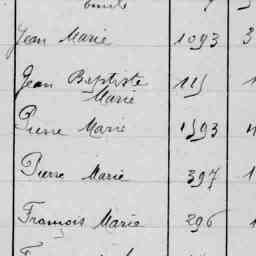 Jean Marie 1093 3
Jean Baptiste
Marie 115 1
Pierre Marie 1593
Pierre Marie 397 1
François Marie 296 1